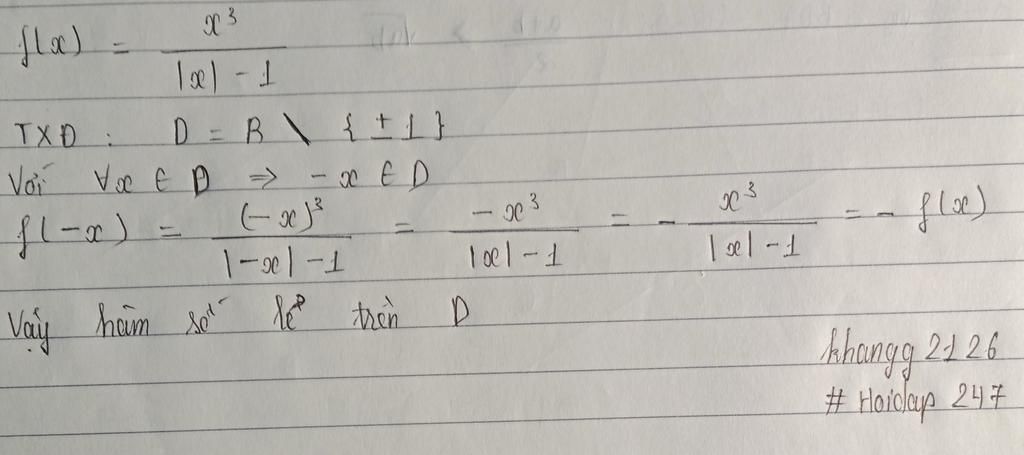 f(x) = x³ / |x| - 1
TXĐ : D = R \ { ± 1 }
Với ∀x ∈ D ⇒ - x ∈ D
f(-x) = (-x)³ / |-x| - 1 = -x³ / |x| - 1 = - x³ / |x| - 1 = - f(x)
Vậy hàm số lẻ trên D
khangg 2126
# Hoidap 247